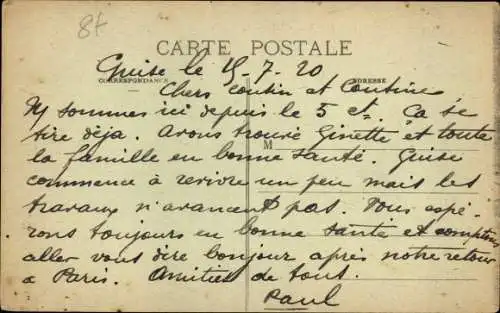 8f
CARTE POSTALE
CORRESPONDANCE
ADRESSE
Guise le 15-7-20
Chers cousin et Cousine
Ny sommes ici depuis le 5 ct. Ça se
tire déja. Avons trouvé Ginette et toute
M
la famille en bonne santé. Guise
commence à revivre un peu mais les
travaux n'avancent pas. Vous espé-
rons toujours en bonne santé et comptons
aller vous dire bonjour après notre retour
a Paris. Amitiés de tous.
Paul